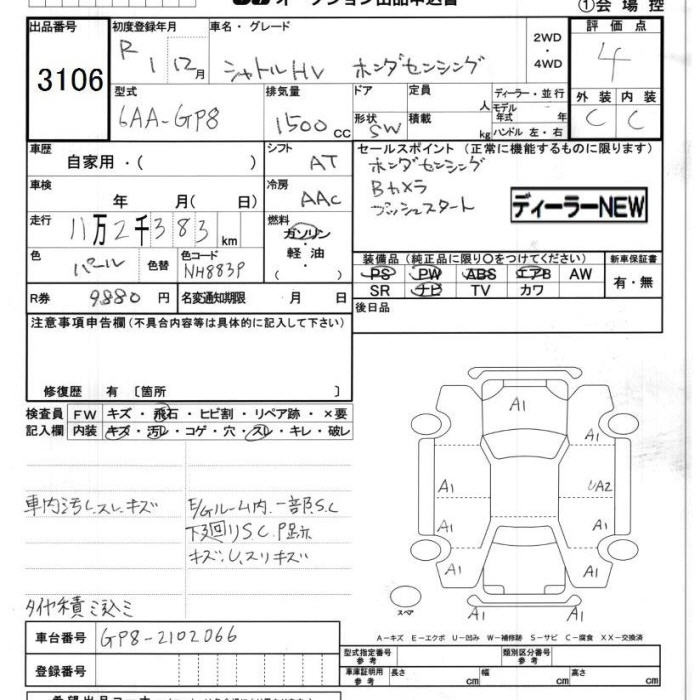 オークション出品申込書
①会場控
出品番号 初度登録年月 車名・グレード 2WD・4WD 評価点
3106 R 1 12月 シャトルHV ホンダセンシング 4
型式 排気量 ドア 定員 人 ディーラー・並行 外装 内装
6AA-GP8 1500cc 形状 SW 積載 kg モデル年式 年 ハンドル 左・右 C C
車歴 自家用・( ) シフト AT セールスポイント (正常に機能するものに限ります)
ホンダセンシング
車検 年 月( 日) 冷房 AAC Bカメラ
プッシュスタート ディーラーNEW
走行 11万2千383km 燃料 ガソリン・軽油・( )
色 パール 色替 色コード NH883P
装備品 (純正品に限り○をつけてください) 新車保証書
PS PW ABS エアB AW 有・無
SR ナビ TV カワ
R券 9880円 名変通知期限 月 日 後日品
注意事項申告欄(不具合内容等は具体的に記入して下さい)
修復歴 有 〔箇所 〕
検査員 FW キズ・飛石・ヒビ割・リペア跡・×要
記入欄 内装 キズ・汚レ・コゲ・穴・スレ・キレ・破レ
車内汚レ、スレ、キズ
E/Gルーム内、一部S.C
下廻リS.C.P跡
キズ、U、スリキズ
タイヤ積ミ込ミ
A1
A1
A1 UA2
A1 A1
A1 A1
A1 A1
スペア
A-キズ E-エクボ U-凹み W-補修跡 S-サビ C-腐食 XX-交換済
車台番号 GP8-2102066
型式指定番号 参考 類別区分番号 参考
登録番号 車庫証明用 参考 長さ cm 幅 cm 高さ cm
希望出品コーナー